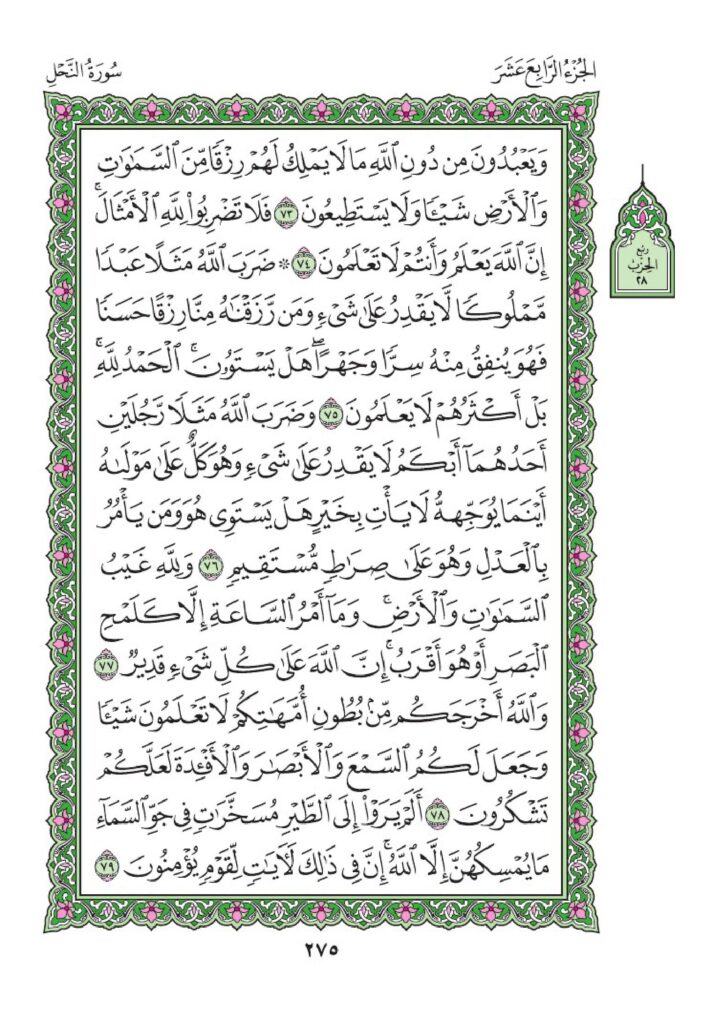 الجُزْءُ الرَّابِعَ عَشَرَ
سُورَةُ النَّحْلِ
وَيَعْبُدُونَ مِن دُونِ ٱللَّهِ مَا لَا يَمْلِكُ لَهُمْ رِزْقًا مِّنَ ٱلسَّمَٰوَٰتِ
وَٱلْأَرْضِ شَيْـًٔا وَلَا يَسْتَطِيعُونَ ٧٣ فَلَا تَضْرِبُوا۟ لِلَّهِ ٱلْأَمْثَالَ ۚ
إِنَّ ٱللَّهَ يَعْلَمُ وَأَنتُمْ لَا تَعْلَمُونَ ٧٤ ۞ ضَرَبَ ٱللَّهُ مَثَلًا عَبْدًا
مَّمْلُوكًا لَّا يَقْدِرُ عَلَىٰ شَىْءٍ وَمَن رَّزَقْنَٰهُ مِنَّا رِزْقًا حَسَنًا
فَهُوَ يُنفِقُ مِنْهُ سِرًّا وَجَهْرًا ۖ هَلْ يَسْتَوُۥنَ ۚ ٱلْحَمْدُ لِلَّهِ ۚ
بَلْ أَكْثَرُهُمْ لَا يَعْلَمُونَ ٧٥ وَضَرَبَ ٱللَّهُ مَثَلًا رَّجُلَيْنِ
أَحَدُهُمَآ أَبْكَمُ لَا يَقْدِرُ عَلَىٰ شَىْءٍ وَهُوَ كَلٌّ عَلَىٰ مَوْلَىٰهُ
أَيْنَمَا يُوَجِّههُّ لَا يَأْتِ بِخَيْرٍ هَلْ يَسْتَوِى هُوَ وَمَن يَأْمُرُ
بِٱلْعَدْلِ وَهُوَ عَلَىٰ صِرَٰطٍ مُّسْتَقِيمٍ ٧٦ وَلِلَّهِ غَيْبُ
ٱلسَّمَٰوَٰتِ وَٱلْأَرْضِ ۚ وَمَآ أَمْرُ ٱلسَّاعَةِ إِلَّا كَلَمْحِ
ٱلْبَصَرِ أَوْ هُوَ أَقْرَبُ ۚ إِنَّ ٱللَّهَ عَلَىٰ كُلِّ شَىْءٍ قَدِيرٌ ٧٧
وَٱللَّهُ أَخْرَجَكُم مِّنۢ بُطُونِ أُمَّهَٰتِكُمْ لَا تَعْلَمُونَ شَيْـًٔا
وَجَعَلَ لَكُمُ ٱلسَّمْعَ وَٱلْأَبْصَٰرَ وَٱلْأَفْـِٔدَةَ لَعَلَّكُمْ
تَشْكُرُونَ ٧٨ أَلَمْ يَرَوْا۟ إِلَى ٱلطَّيْرِ مُسَخَّرَٰتٍ فِى جَوِّ ٱلسَّمَآءِ
مَا يُمْسِكُهُنَّ إِلَّا ٱللَّهُ ۗ إِنَّ فِى ذَٰلِكَ لَـَٔايَٰتٍ لِّقَوْمٍ يُؤْمِنُونَ ٧٩
رُبْعُ
الحِزْبِ
٢٨
٢٧٥